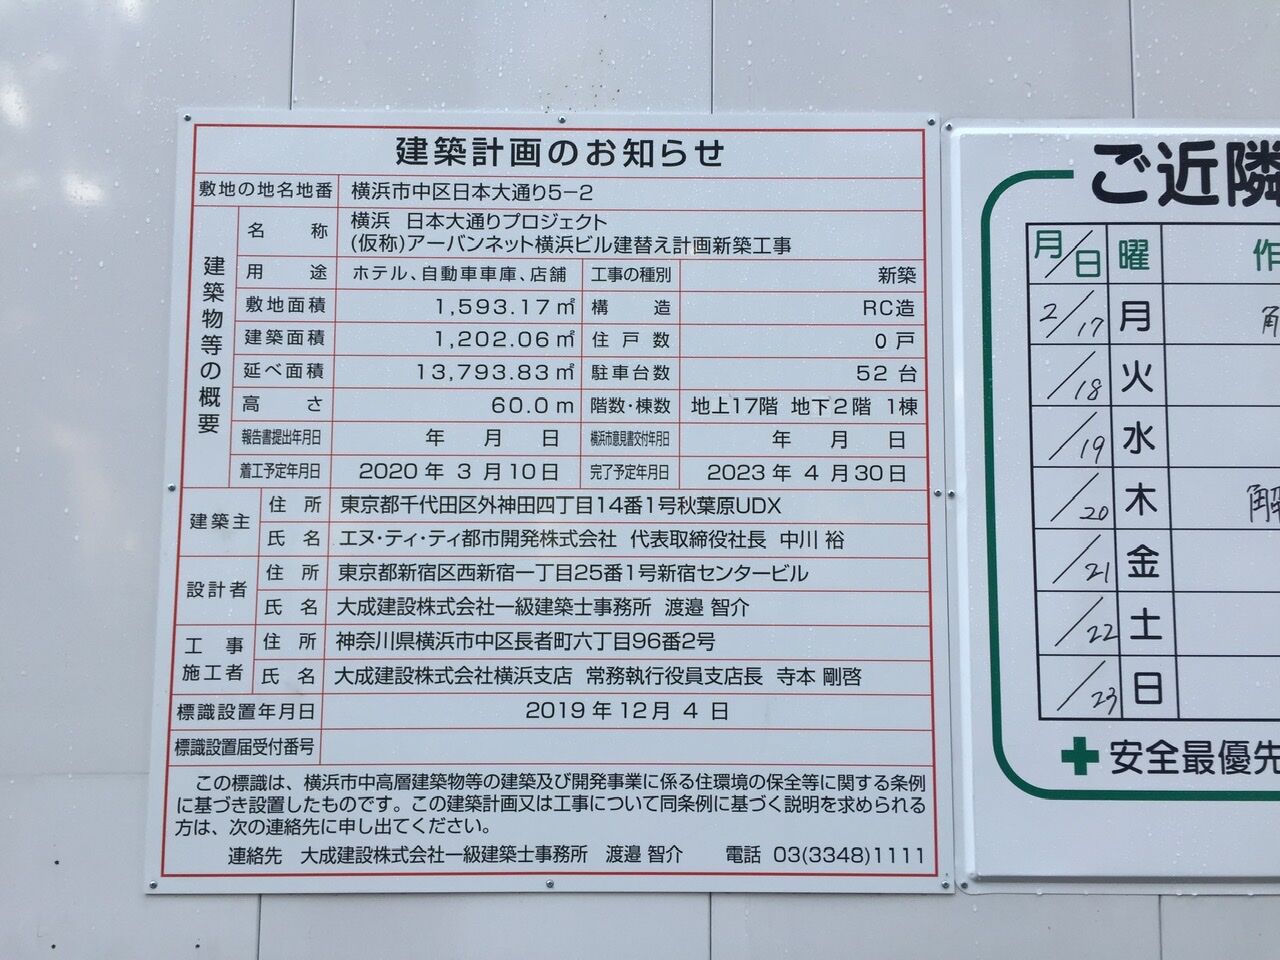 建築計画のお知らせ
敷地の地名地番 横浜市中区日本大通り5−2
建築物等の概要
名称 横浜 日本大通りプロジェクト
(仮称)アーバンネット横浜ビル建替え計画新築工事
用途 ホテル、自動車車庫、店舗 工事の種別 新築
敷地面積 1,593.17㎡ 構造 RC造
建築面積 1,202.06㎡ 住戸数 0戸
延べ面積 13,793.83㎡ 駐車台数 52台
高さ 60.0m 階数・棟数 地上17階 地下2階 1棟
報告書提出年月日 年 月 日 横浜市意見書交付年月日 年 月 日
着工予定年月日 2020年 3月10日 完了予定年月日 2023年 4月30日
建築主 住所 東京都千代田区外神田四丁目14番1号秋葉原UDX
氏名 エヌ・ティ・ティ都市開発株式会社 代表取締役社長 中川 裕
設計者 住所 東京都新宿区西新宿一丁目25番1号新宿センタービル
氏名 大成建設株式会社一級建築士事務所 渡邉 智介
工事施工者 住所 神奈川県横浜市中区長者町六丁目96番2号
氏名 大成建設株式会社横浜支店 常務執行役員支店長 寺本 剛啓
標識設置年月日 2019年12月 4日
標識設置届受付番号
この標識は、横浜市中高層建築物等の建築及び開発事業に係る住環境の保全等に関する条例
に基づき設置したものです。この建築計画又は工事について同条例に基づく説明を求められる
方は、次の連絡先に申し出てください。
連絡先 大成建設株式会社一級建築士事務所 渡邉 智介 電話 03(3348)1111
ご近隣
月/日 曜 作
2/17 月 解
/18 火
/19 水
/20 木 解
/21 金
/22 土
/23 日
安全最優先